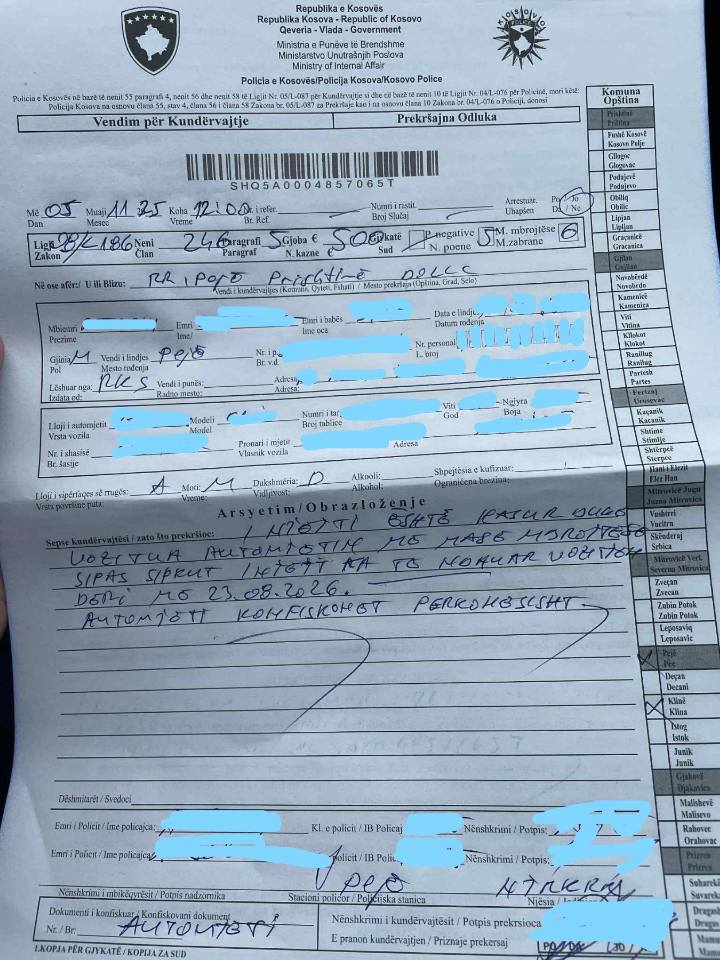 Republika e Kosovës
Republika Kosova - Republic of Kosovo
Qeveria - Vlada - Government
Ministria e Punëve të Brendshme
Ministarstvo Unutrašnjih Poslova
Ministry of Internal Affair
Policia e Kosovës/Policija Kosova/Kosovo Police
Policia e Kosovës në bazë të nenit 55 paragrafi 4, nenit 56 dhe nenit 58 të Ligjit Nr. 05/L-087 për Kundërvajtje si dhe në bazë të nenit 10 të Ligjit Nr. 04/L-076 për Policinë, mori këtë:
Policija Kosova na osnovu člana 55, stav 4, člana 56 i člana 58 Zakona br. 05/L-087 za Prekršaje kao i na osnovu člana 10 Zakona br. 04/L-076 o Policiji, donosi
Vendim për Kundërvajtje
Prekršajna Odluka
SHQ5A0004857065T
Më 05 Muaji 11.25 Koha 12:00 Nr. i refer. Numri i rastit. Arrestuar. Po Jo
Dan Mesec Vreme Br. Ref. Broj Slučaj Uhapšen Da / Ne
Ligji Neni 246 Paragrafi 5 Gjoba € 500 Gjykatë P. negative 5 M. mbrojtëse 6
Zakon Član Paragraf N. kazne € Sud N. poene M. zabrane
Në ose afër:/ U ili Blizu: RR. Pejë Prishtinë DOLLC
Vendi i kundërvajtjes (Komuna, Qyteti, Fshati) / Mesto prekršaja (Opština, Grad, Selo)
Mbiemri Emri Emri i babës Data e lindjes
Prezime Ime/ Ime oca Datum rođenja
Gjinia M Vendi i lindjes Pejë Nr. i p. Nr. personal
Pol Mesto rođenja Br. v.d. L. broj
Lëshuar nga: RKS Vendi i punës: Adresa
Izdata od: Radno mesto: Adresa:
Lloji i automjetit Modeli Numri i tar. Viti Ngjyra
Vrsta vozila Model Broj tablice God Boja
Nr. i shasisë Pronari i mjetit Adresa
Br. šasije Vlasnik vozila
Lloji i sipërfaqes së rrugës: A Moti: M Dukshmëria: D Alkooli: Shpejtësia e kufizuar:
Vrsta površine puta: Vreme: Vidljivost: Alkohol: Ograničena brezina:
Arsyetim/Obrazloženje
Sepse kundërvajtësi / zato što prekršioc: I NJEJTI ËSHTË KAPUR DUKE
VOZITUR AUTOMJETIN ME MASË MBROJTËSE
SIPAS SIPKUT I NJEJTI KA TË NDALUAR VOZITJEN
DERI MË 23.08.2026.
AUTOMJETI KONFISKOHET PERKOHESISHT
Dëshmitarët / Svedoci
Emri i Policit / Ime policajca: Kl. e policit / IB Policaj Nënshkrimi / Potpis:
Emri i Policit / Ime policajca: policit / IB Polic. Nënshkrimi / Potpis:
PEJË
Nënshkrimi i mbikëqyrësit / Potpis nadzornika Stacioni policor / Policijska stanica Njësia /
Dokumenti i konfiskuar / Konfiskovani dokument
Nr. / Br: AUTOMJETI
Nënshkrimi i kundërvajtësit / Potpis prekrsioca
E pranon kundërvajtjen / Priznaje prekersaj
I.KOPJA PËR GJYKATË / KOPIJA ZA SUD
Komuna
Opština
Prishtinë
Priština
Fushë Kosovë
Kosovo Polje
Gllogoc
Glogovac
Podujevë
Podujevo
Obiliq
Obilic
Lipjan
Lipljan
Graçanicë
Gracanica
Gjilan
Gnjilane
Novobërdë
Novobërdo
Kamenicë
Kamenica
Viti
Vitina
Kllokot
Klokot
Ranillug
Ranilug
Partesh
Partes
Ferizaj
Urosevac
Kaçanik
Kacanik
Shtime
Stimlje
Shtërpcë
Sterpce
Hani i Elezit
Elez Han
Mitrovicë Jugu
Juzna Mitrovica
Vushtrri
Vucitrn
Skënderaj
Srbica
Mitrovicë Veri.
Severna Mitrovica
Zveçan
Zvecan
Zubin Potok
Zubin Potok
Leposaviq
Leposavic
Pejë
Pec
Deçan
Decani
Klinë
Klina
Istog
Istok
Junik
Junik
Gjakovë
Djakovica
Malishevë
Malisevo
Rahovec
Orahovac
Prizren
Prizren
Suharekë
Suvareka
Dragash